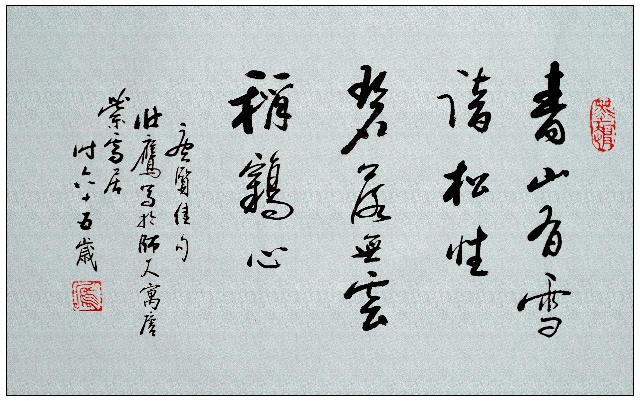 青山有雪
諳松性
碧落無雲
稱鶴心
唐賢佳句
壯鷹写於師大寓廬
紫居
时六十五歲